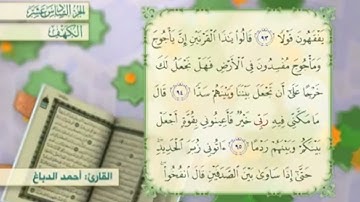 الجزء السادس عشر
الكهف
يَفْقَهُونَ قَوْلًا ٩٣ قَالُوا۟ يَٰذَا ٱلْقَرْنَيْنِ إِنَّ يَأْجُوجَ
وَمَأْجُوجَ مُفْسِدُونَ فِى ٱلْأَرْضِ فَهَلْ نَجْعَلُ لَكَ
خَرْجًا عَلَىٰٓ أَن تَجْعَلَ بَيْنَنَا وَبَيْنَهُمْ سَدًّا ٩٤ قَالَ
مَا مَكَّنِّى فِيهِ رَبِّى خَيْرٌ فَأَعِينُونِى بِقُوَّةٍ أَجْعَلْ
بَيْنَكُمْ وَبَيْنَهُمْ رَدْمًا ٩٥ ءَاتُونِى زُبَرَ ٱلْحَدِيدِ
حَتَّىٰٓ إِذَا سَاوَىٰ بَيْنَ ٱلصَّدَفَيْنِ قَالَ ٱنفُخُوا۟
القارئ: أحمد الدباغ